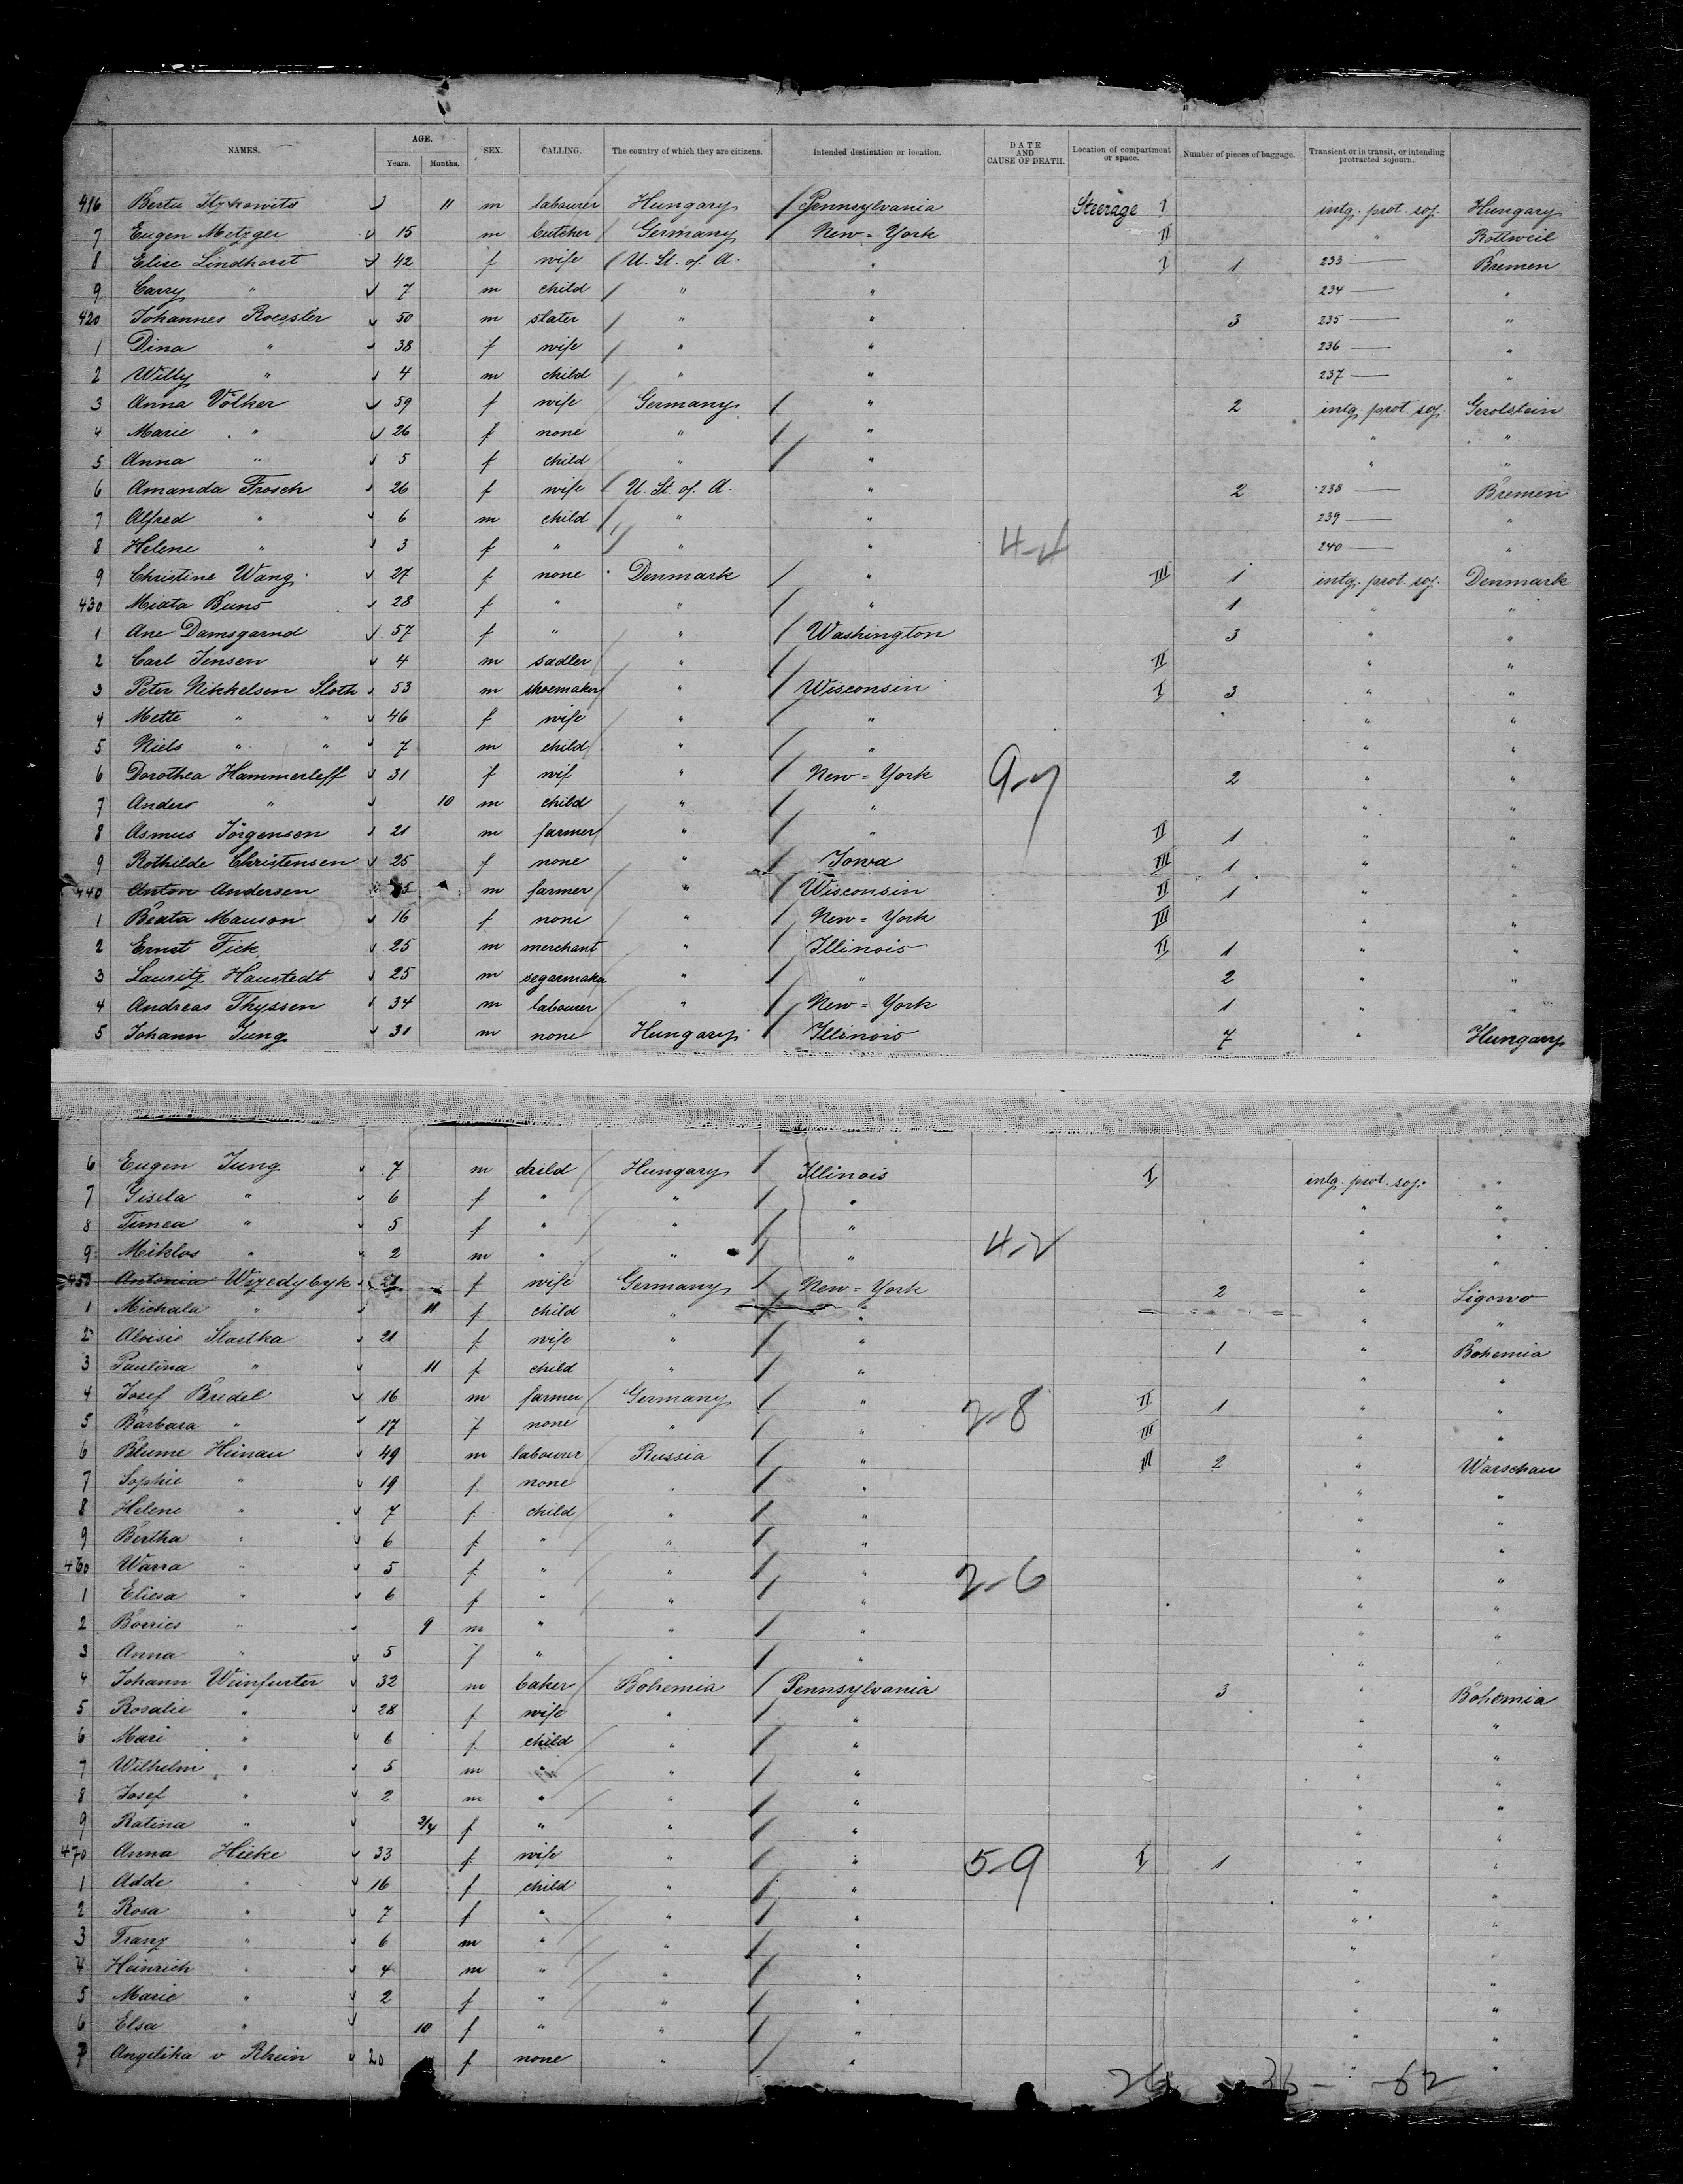 NAMES. AGE. Years. Months. SEX. CALLING. The country of which they are citizens. Intended destination or location. DATE AND CAUSE OF DEATH. Location of compartment or space. Number of pieces of baggage. Transient or in transit, or intending protracted sojourn.
416 Bertu Itzkowits 11 m labourer Hungary Pennsylvania Steerage I intg. prot. soj. Hungary
7 Eugen Metzger 15 m butcher Germany New-York II " Rottweil
8 Elise Lindhorst 42 f wife U. St. of A. " I 1 233 Bremen
9 Carry " 7 m child " " 234 "
420 Johannes Roessler 50 m slater " " 3 235 "
1 Dina " 38 f wife " " 236 "
2 Willy " 4 m child " " 237 "
3 Anna Völker 59 f wife Germany " 2 intg. prot. soj. Gerolstein
4 Marie " 26 f none " " " "
5 Anna " 5 f child " " " "
6 Amanda Frosch 26 f wife U. St. of A. " 2 238 Bremen
7 Alfred " 6 m child " " 239 "
8 Helene " 3 f " " " 240 "
9 Christine Wang 27 f none Denmark " III 1 intg. prot. soj. Denmark
430 Miata Buns 28 f " " " 1 " "
1 Ane Damsgarnd 57 f " " Washington 3 " "
2 Carl Jensen 4 m sadler " II " "
3 Peter Nikkelsen Sloth 53 m shoemaker " Wisconsin I 3 " "
4 Mette " " 46 f wife " " " "
5 Niels " " 7 m child " " " "
6 Dorothea Hammerleff 31 f wif " New-York 9-7 2 " "
7 Anders " 10 m child " " " "
8 Asmus Jörgensen 21 m farmer " " II 1 " "
9 Rothilde Christensen 25 f none " Iowa III 1 " "
440 Anton Andersen m farmer " Wisconsin II 1 " "
1 Beata Mauson 16 f none " New-York III " "
2 Ernst Fick 25 m merchant " Illinois II 1 " "
3 Lauritz Haustedt 25 m segarmaker " " 2 " "
4 Andreas Thyssen 34 m labourer " New-York 1 " "
5 Johann Jung 31 m none Hungary Illinois 7 " Hungary
6 Eugen Jung 7 m child Hungary Illinois I intg. prot. soj. "
7 Gisela " 6 f " " " " "
8 Timea " 5 f " " " " "
9 Miklos " 2 m " " " 4-2 " "
450 Antonia Wizedybyk 21 f wife Germany New-York 2 " Ligowo
1 Michala " 11 f child " " " "
2 Aloisie Stastka 21 f wife " " 1 " Bohemia
3 Paulina " 11 f child " " " "
4 Josef Bredel 16 m farmer Germany " 2-8 II 1 " "
5 Barbara " 17 f none " " III " "
6 Blume Heinau 49 m labourer Russia " III 2 " Warschau
7 Sophie " 19 f none " " " "
8 Helene " 7 f child " " " "
9 Bertha " 6 f " " " " "
460 Warra " 5 f " " " 2-6 " "
1 Eliesa " 6 f " " " " "
2 Borries " 9 m " " " " "
3 Anna " 5 f " " " " "
4 Johann Weinfurter 32 m baker Bohemia Pennsylvania 3 " Bohemia
5 Rosalie " 28 f wife " " " "
6 Mari " 6 f child " " " "
7 Wilhelm " 5 m " " " " "
8 Josef " 2 m " " " " "
9 Katina " 3/4 f " " " " "
470 Anna Hieke 33 f wife " " 5-9 I 1 " "
1 Adde " 16 f child " " " "
2 Rosa " 7 f " " " " "
3 Franz " 6 m " " " " "
4 Heinrich " 4 m " " " " "
5 Marie " 2 f " " " " "
6 Elsa " 10 f " " " " "
7 Angelika v Rhein 20 f none " " " "